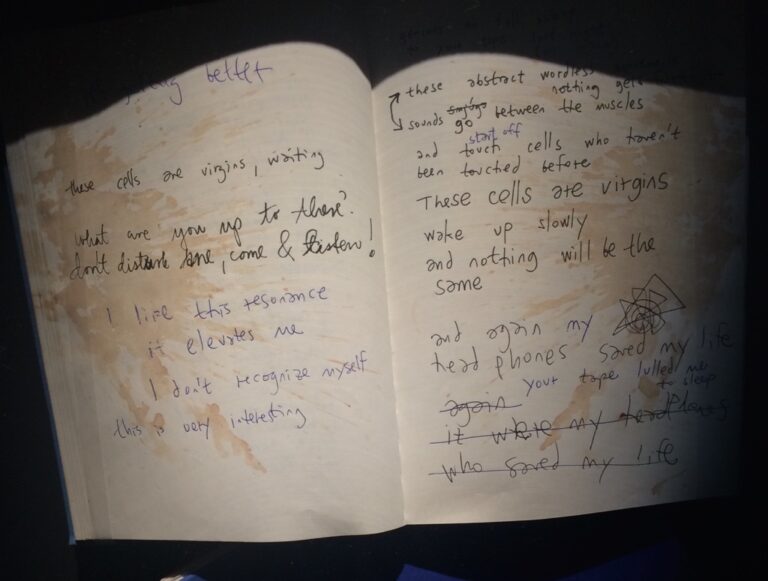 better
these cells are virgins, waiting
what are you up to there?
don't disturb me, come & listen!
I like this resonance
it elevates me
I don't recognize myself
this is very interesting
these abstract wordless
nothing gets
sounds go between the muscles
start off
and touch cells who haven't
been touched before
These cells are virgins
wake up slowly
and nothing will be the
same
and again my
head phones saved my life
your tape lulled me
to sleep
again
it were my headphones
who saved my life